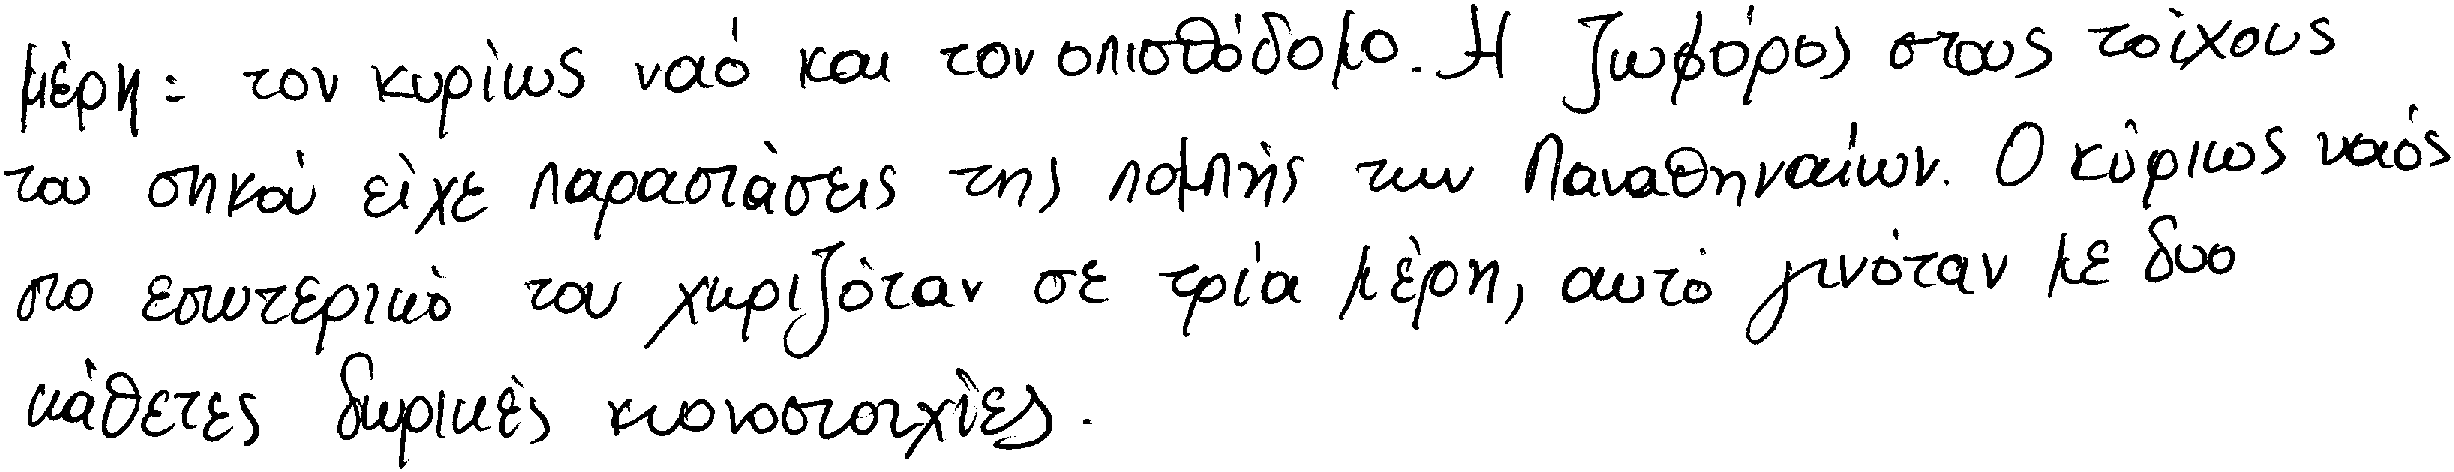 μέρη: τον κυρίως ναό και τον οπισθόδομο. Η ζωφόρος στους τοίχους
του σηκού είχε παραστάσεις της πομπής των Παναθηναίων. Ο κύριως ναός
στο εσωτερικό του χωριζόταν σε τρία μέρη, αυτό γινόταν με δυο
κάθετες δωρικές κιονοστοιχίες.